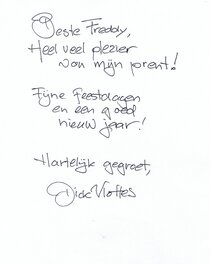 Beste Freddy,
Heel veel plezier
van mijn prent!
Fijne feestdagen
en een goed
nieuw jaar!
Hartelijk gegroet,
Dick Vlottes